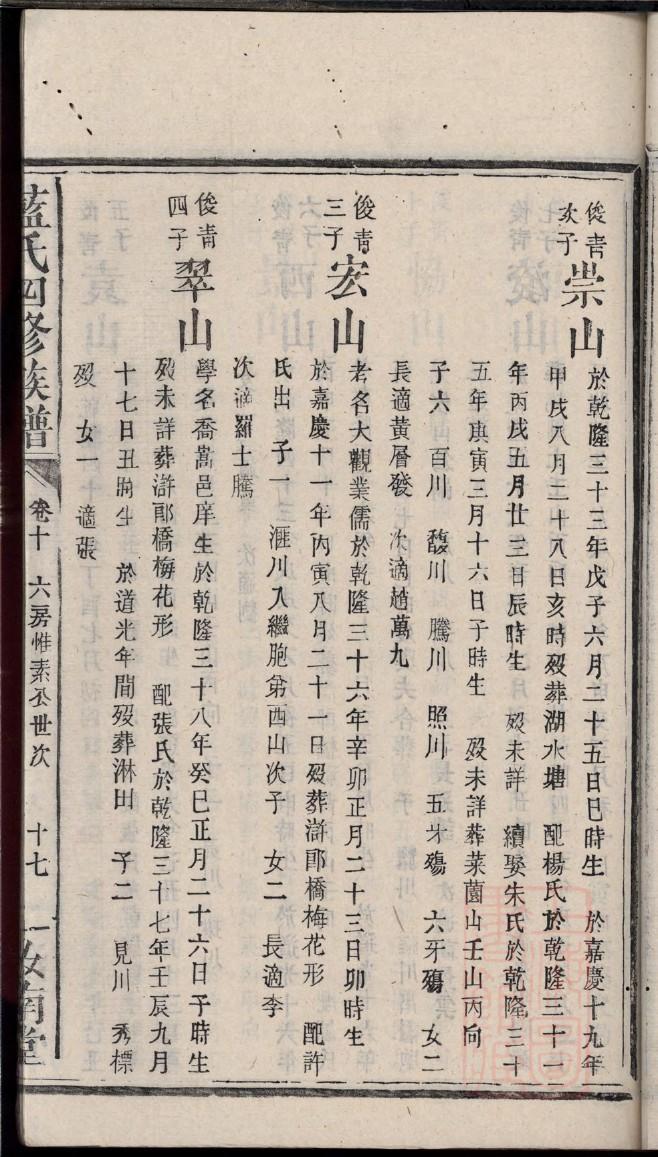 俊青次子崇山
於乾隆三十三年戊子六月二十五日巳時生 於嘉慶十九年
甲戌八月二十八日亥時歿葬湖水塘 配楊氏於乾隆三十一
年丙戌五月廿三日辰時生 歿未詳 續娶朱氏於乾隆三十
五年庚寅三月十六日子時生 歿未詳葬菜薗山壬山丙向
子六 百川 馥川 騰川 照川 五牙殤 六牙殤 女二
長適黃層發 次適趙萬九
俊青三子宏山
老名大觀業儒於乾隆三十六年辛卯正月二十三日卯時生
於嘉慶十一年丙寅八月二十一日歿葬滸郎橋梅花形 配許
氏出 子一 滙川入繼胞弟西山次子 女二 長適李
次適羅士騰
俊青四子翠山
學名喬嵩邑庠生於乾隆三十八年癸巳正月二十六日子時生
歿未詳葬滸郎橋梅花形 配張氏於乾隆三十七年壬辰九月
十七日丑時生 於道光年間歿葬淋田 子二 見川 秀標
歿 女一 適張
藍氏四修族譜 卷十 六房惟素公世次 十七 汝南堂